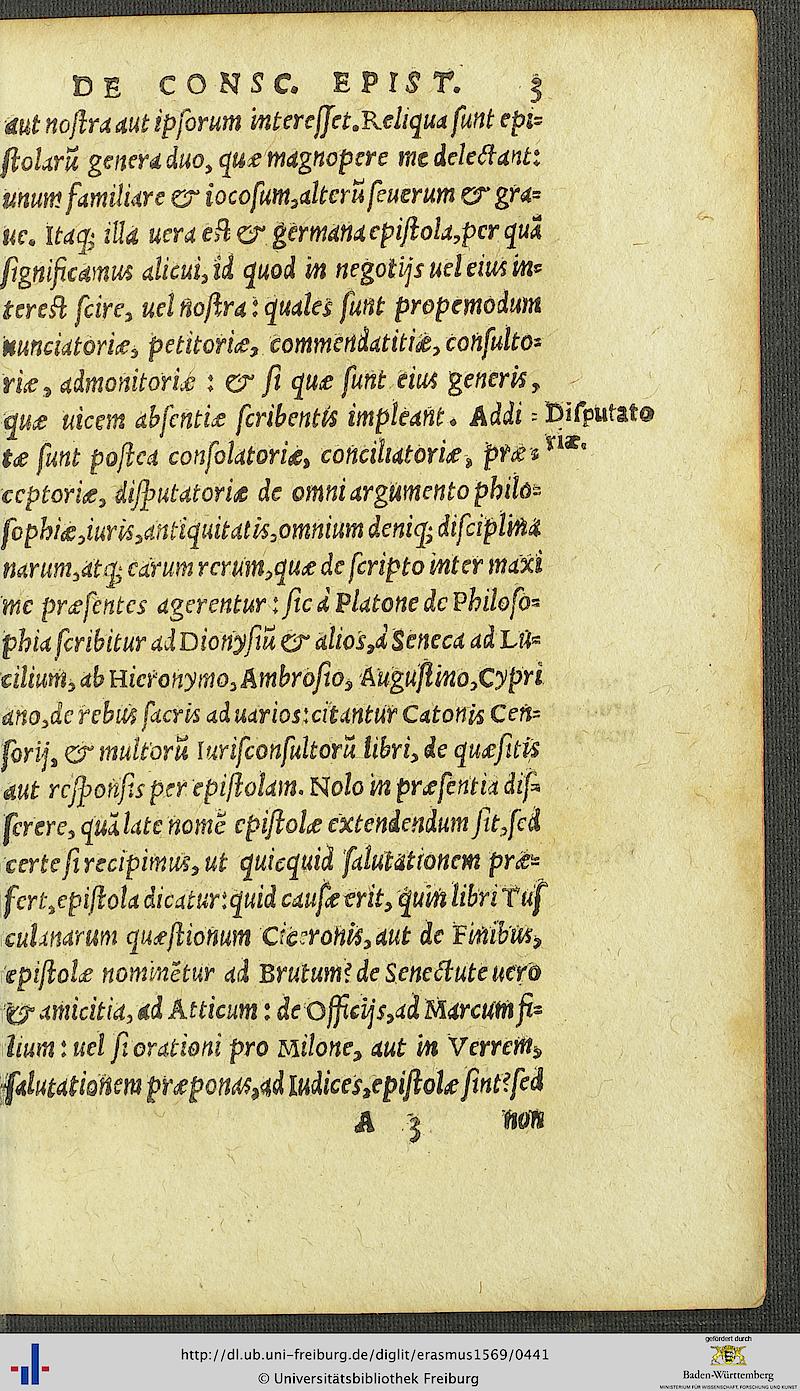 DE CONSC. EPIST. 3
aut noſtra aut ipſorum intereſſet. Reliqua ſunt epi=
ſtolarũ genera duo, quæ magnopere me delectant:
unum familiare & iocoſum, alterũ ſeuerum & gra=
ue. Itaq; illa uera eſt & germana epiſtola, per quã
ſignificamus alicui, id quod in negotijs uel eius in=
tereſt ſcire, uel noſtra: quales ſunt propemodum
nunciatoriæ, petitoriæ, commendatitiæ, conſulto=
riæ, admonitoriæ: & ſi quæ ſunt eius generis,
quæ uicem abſentiæ ſcribentis impleant. Addi=
Diſputato
riæ.
tæ ſunt poſtea conſolatoriæ, conciliatoriæ, præ=
ceptoriæ, diſputatoriæ de omni argumento philo=
ſophiæ, iuris, antiquitatis, omnium deniq; diſciplina
narum, atq; earum rerum, quæ de ſcripto inter maxi
me præſentes agerentur: ſic à Platone de Philoſo=
phia ſcribitur ad Dionyſiũ & alios, à Seneca ad Lu=
cilium, ab Hieronymo, Ambroſio, Auguſtino, Cypri
ano, de rebus ſacris ad uarios: citantur Catonis Cen=
ſorij, & multorũ Iuriſconſultorũ libri, de quæſitis
aut reſponſis per epiſtolam. Nolo in præſentia diſ=
ſerere, quã late nomẽ epiſtolæ extendendum ſit, ſed
certe ſi recipimus, ut quicquid ſalutationem præ=
fert, epiſtola dicatur: quid cauſæ erit, quin libri Tuſ
culanarum quæſtionum Ciceronis, aut de Finibus,
epiſtolæ nominẽtur ad Brutum? de Senectute uero
& amicitia, ad Atticum: de Officijs, ad Marcum fi=
lium: uel ſi orationi pro Milone, aut in Verrem,
ſalutationem præponas, ad Iudices, epiſtolæ ſint? ſed
A 3 non
http://dl.ub.uni-freiburg.de/diglit/erasmus1569/0441
© Universitätsbibliothek Freiburg
gefördert durch
Baden-Württemberg
MINISTERIUM FÜR WISSENSCHAFT, FORSCHUNG UND KUNST